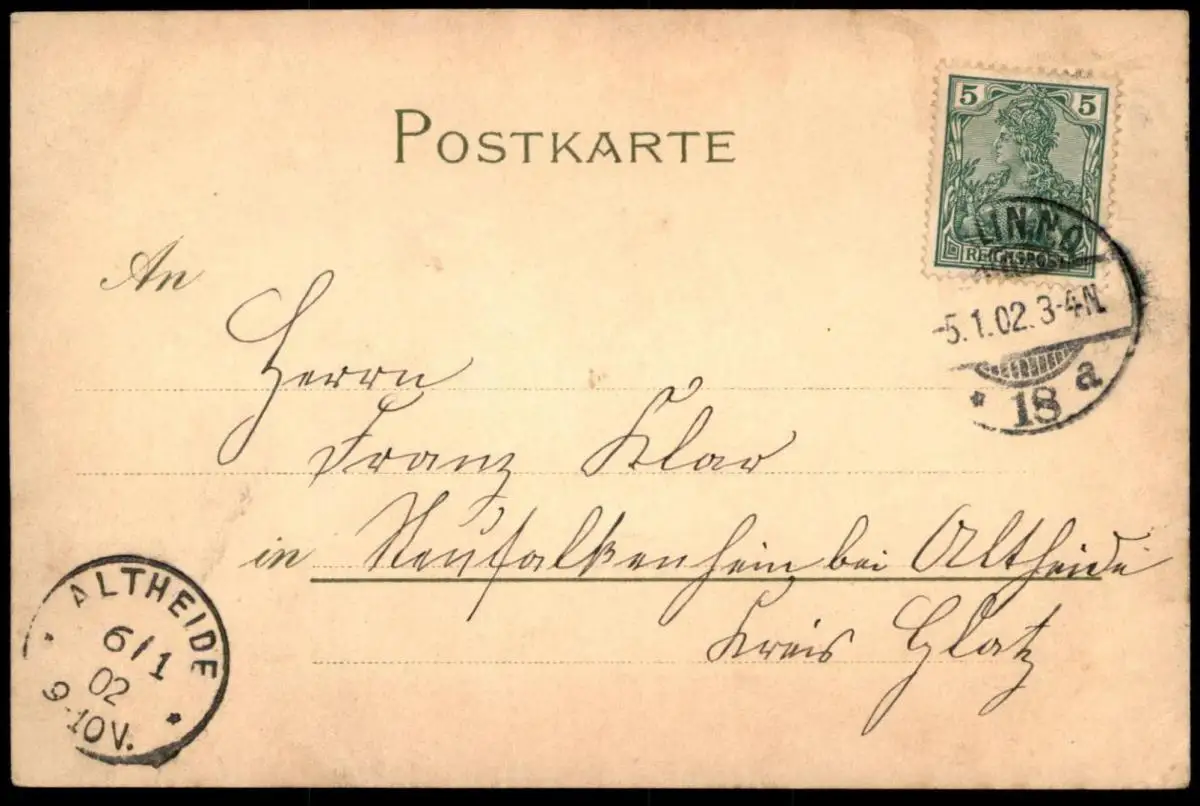 POSTKARTE
5 5
REICHSPOST
-5.1.02. 3-4N.
* 18 a
An
Herrn
Franz Klar
in Neufalkenhein bei Altheide
Kreis Glatz
ALTHEIDE
6/1
02
9-10V.